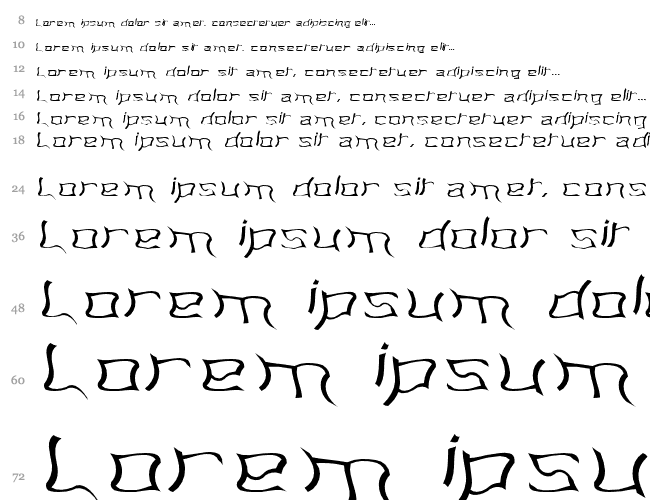 8 Lorem ipsum dolor sit amet, consectetuer adipiscing elit...
10 Lorem ipsum dolor sit amet, consectetuer adipiscing elit...
12 Lorem ipsum dolor sit amet, consectetuer adipiscing elit...
14 Lorem ipsum dolor sit amet, consectetuer adipiscing elit...
16 Lorem ipsum dolor sit amet, consectetuer adipiscing
18 Lorem ipsum dolor sit amet, consectetuer adi
24 Lorem ipsum dolor sit amet, cons
36 Lorem ipsum dolor sit
48 Lorem ipsum dol
60 Lorem ipsum
72 Lorem ipsu